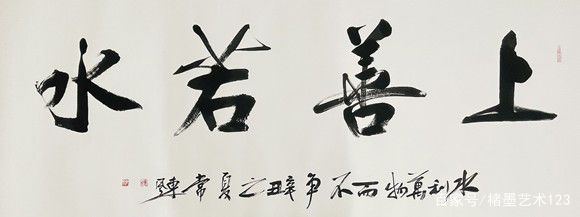 上善若水
水利萬物而不争辛丑之夏常
百家号/楮墨艺术123